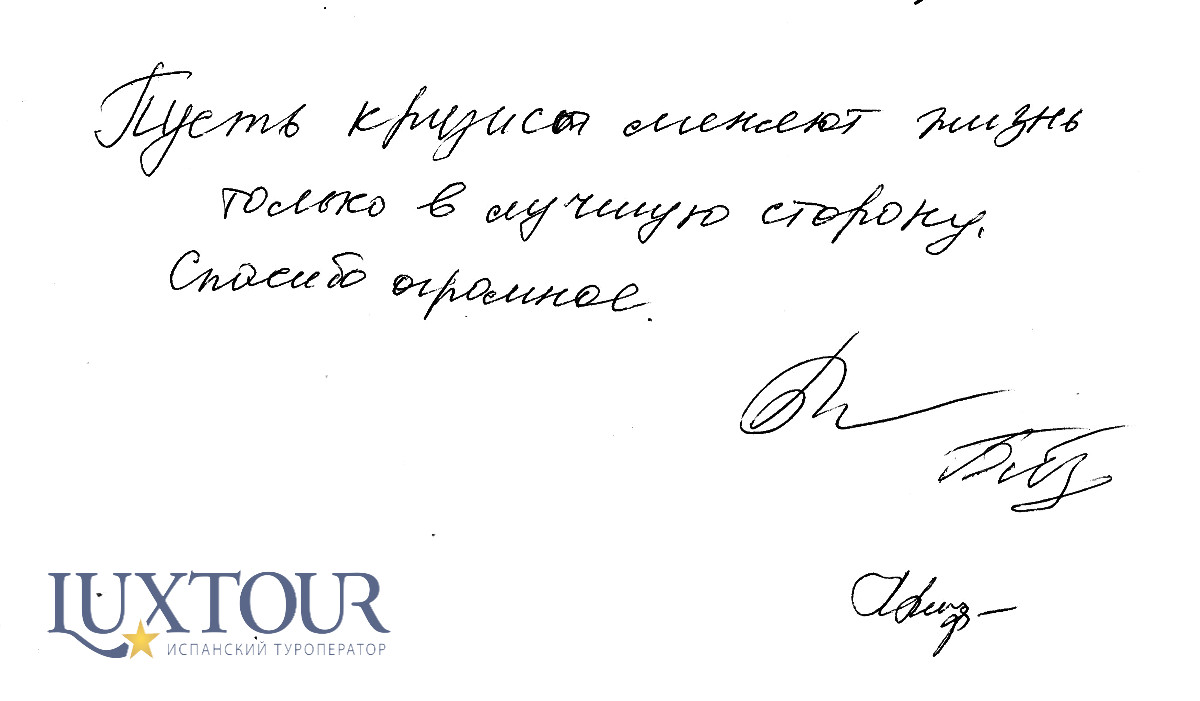 Пусть кризисы меняют жизнь
только в лучшую сторону.
Спасибо огромное.
LUXTOUR
ИСПАНСКИЙ ТУРОПЕРАТОР